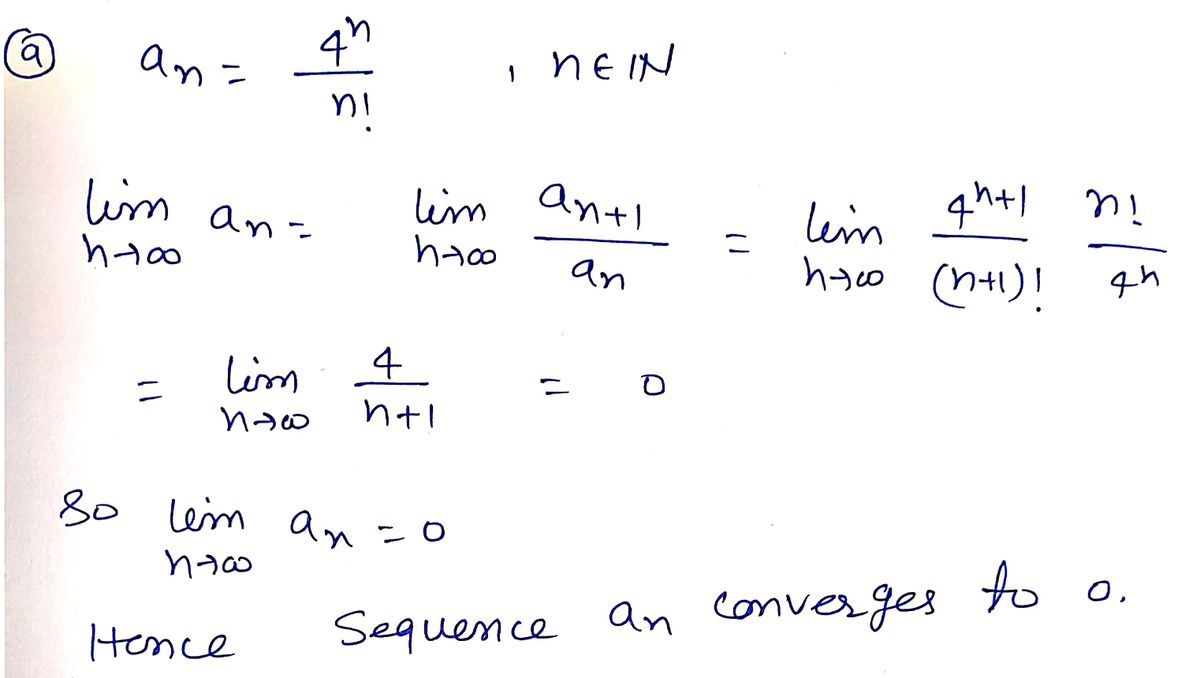 ⓐ aₙ = 4ⁿ / n! , n ∈ ℕ
lim n→∞ aₙ = lim n→∞ aₙ₊₁ / aₙ = lim n→∞ 4ⁿ⁺¹ / (n+1)! n! / 4ⁿ
= lim n→∞ 4 / n+1 = 0
So lim n→∞ aₙ = 0
Hence Sequence aₙ converges to 0.